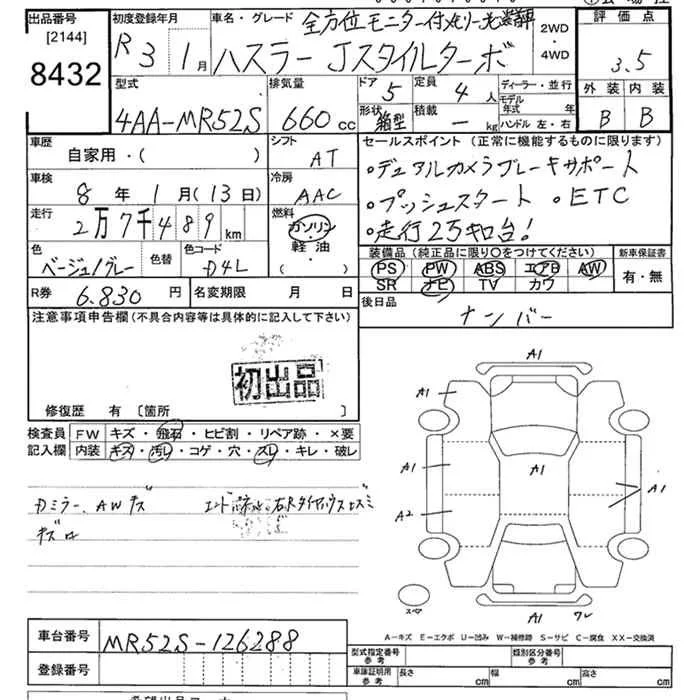 出品番号
[2144]
8432
初度登録年月
R3年1月
車名・グレード 全方位モニター付
ハスラー Jスタイルターボ
2WD
・
4WD
評価点
3.5
外装 内装
B B
型式
4AA-MR52S
排気量
660 cc
ドア 5
定員 4 人
形状 箱型
積載 — kg
ディーラー・並行
モデル年式 年
ハンドル 左・右
車歴
自家用・( )
シフト
AT
車検
8年1月(13日)
冷房
AAC
走行
2万7千489km
燃料
ガソリン・
軽油・
( )
色
ベージュ/グレー
色替
色コード
D4L
R券 6.830円
名変期限 月 日
セールスポイント (正常に機能するものに限ります)
・デュアルカメラブレーキサポート
・プッシュスタート ・ETC
・走行2万キロ台!
装備品 (純正品に限り○をつけてください)
PS PW ABS エアB AW
SR ナビ TV カワ
新車保証書
有・無
後日品
ナンバー
注意事項申告欄 (不具合内容等は具体的に記入して下さい)
初出品
修復歴 有 [箇所 ]
検査員
記入欄
FW キズ・飛石・ヒビ割・リペア跡・×要
内装 キズ・汚レ・コゲ・穴・スレ・キレ・破レ
Dミラー、AWキズ
A1
A1
A1
A1
A1
A2
A1
スペア
A-キズ E-エクボ U-凹み W-補修跡 S-サビ C-腐食 XX-交換済
車台番号 MR52S-126288
登録番号
型式指定番号
参考
類別区分番号
参考
車庫証明用
参考
長さ cm
幅 cm
高さ cm